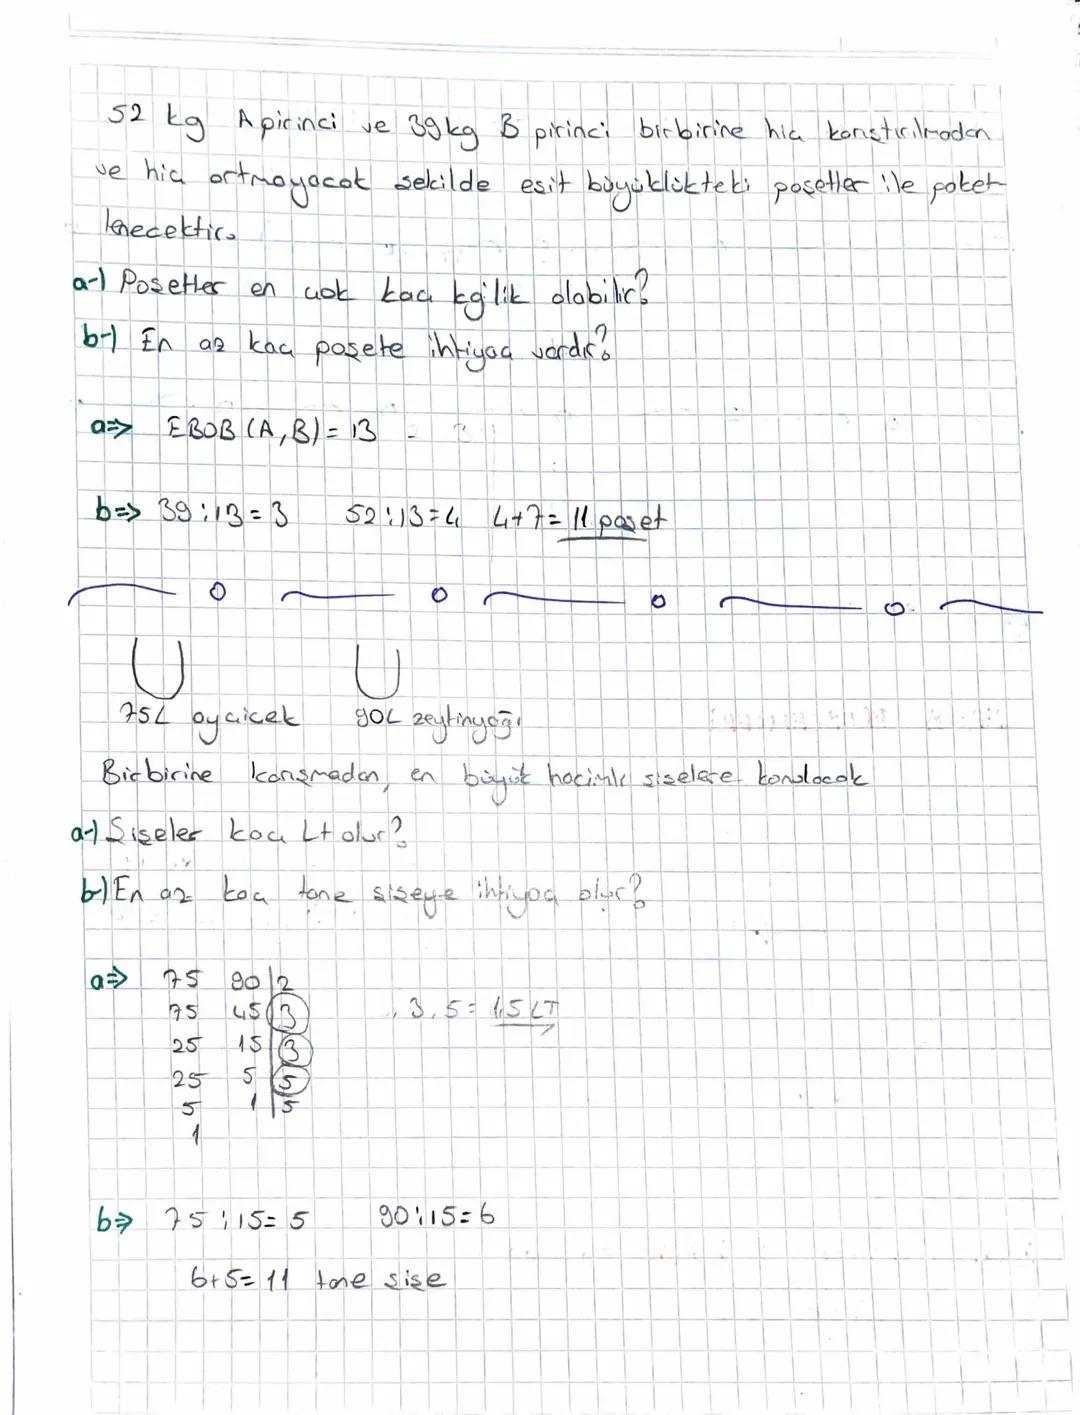 52 kg A pirinci ve 39kg B pirinci birbirine hiç karıştırılmadan
ve hiç artmayacak şekilde eşit büyüklükteki poşetler ile paket-
lenecektir.
a-) Poşetler en çok kaç kg'lik olabilir?
b-) En az kaç poşete ihtiyaç vardır?
a=> EBOB (A,B) = 13
b=> 39:13=3 52:13=4 4+7= 11 poşet
75L ayçiçek 90L zeytinyağı
Birbirine karışmadan, en büyük hacimli şişelere konulacak
a-) Şişeler kaç Lt olur?
b-) En az kaç tane şişeye ihtiyaç olur?
a=> 75 90 | 2
75 45 | 3 3.5= 15 LT
25 15 | 3
25 5 | 5
5 1 | 5
1
b=> 75:15= 5 90:15=6
6+5= 11 tane şişe